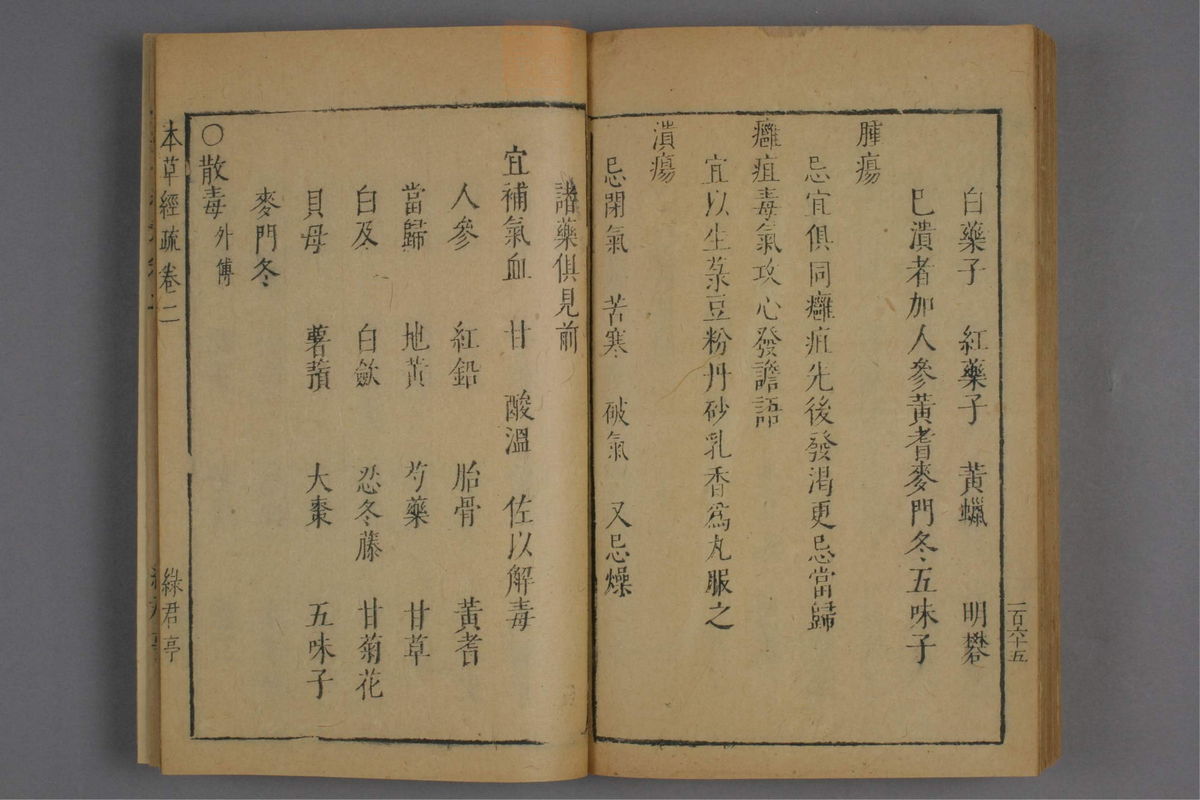 白藥子 紅藥子 黃蠟 明礬
巳潰者加人參黃耆麥門冬五味子
腫瘍
忌宜俱同癰疽先後發渴更忌當歸
癰疽毒氣攻心發譫語
宜以生菉豆粉丹砂乳香爲丸服之
潰瘍
忌閉氣 苦寒 破氣 又忌燥
一百六十五
諸藥俱見前
宜補氣血 甘 酸溫 佐以解毒
人參 紅鉛 胎骨 黃耆
當歸 地黃 芍藥 甘草
白及 白歛 忍冬藤 甘菊花
貝母 薯蕷 大棗 五味子
麥門冬
○散毒外傅
本草經疏卷二 綠君亭